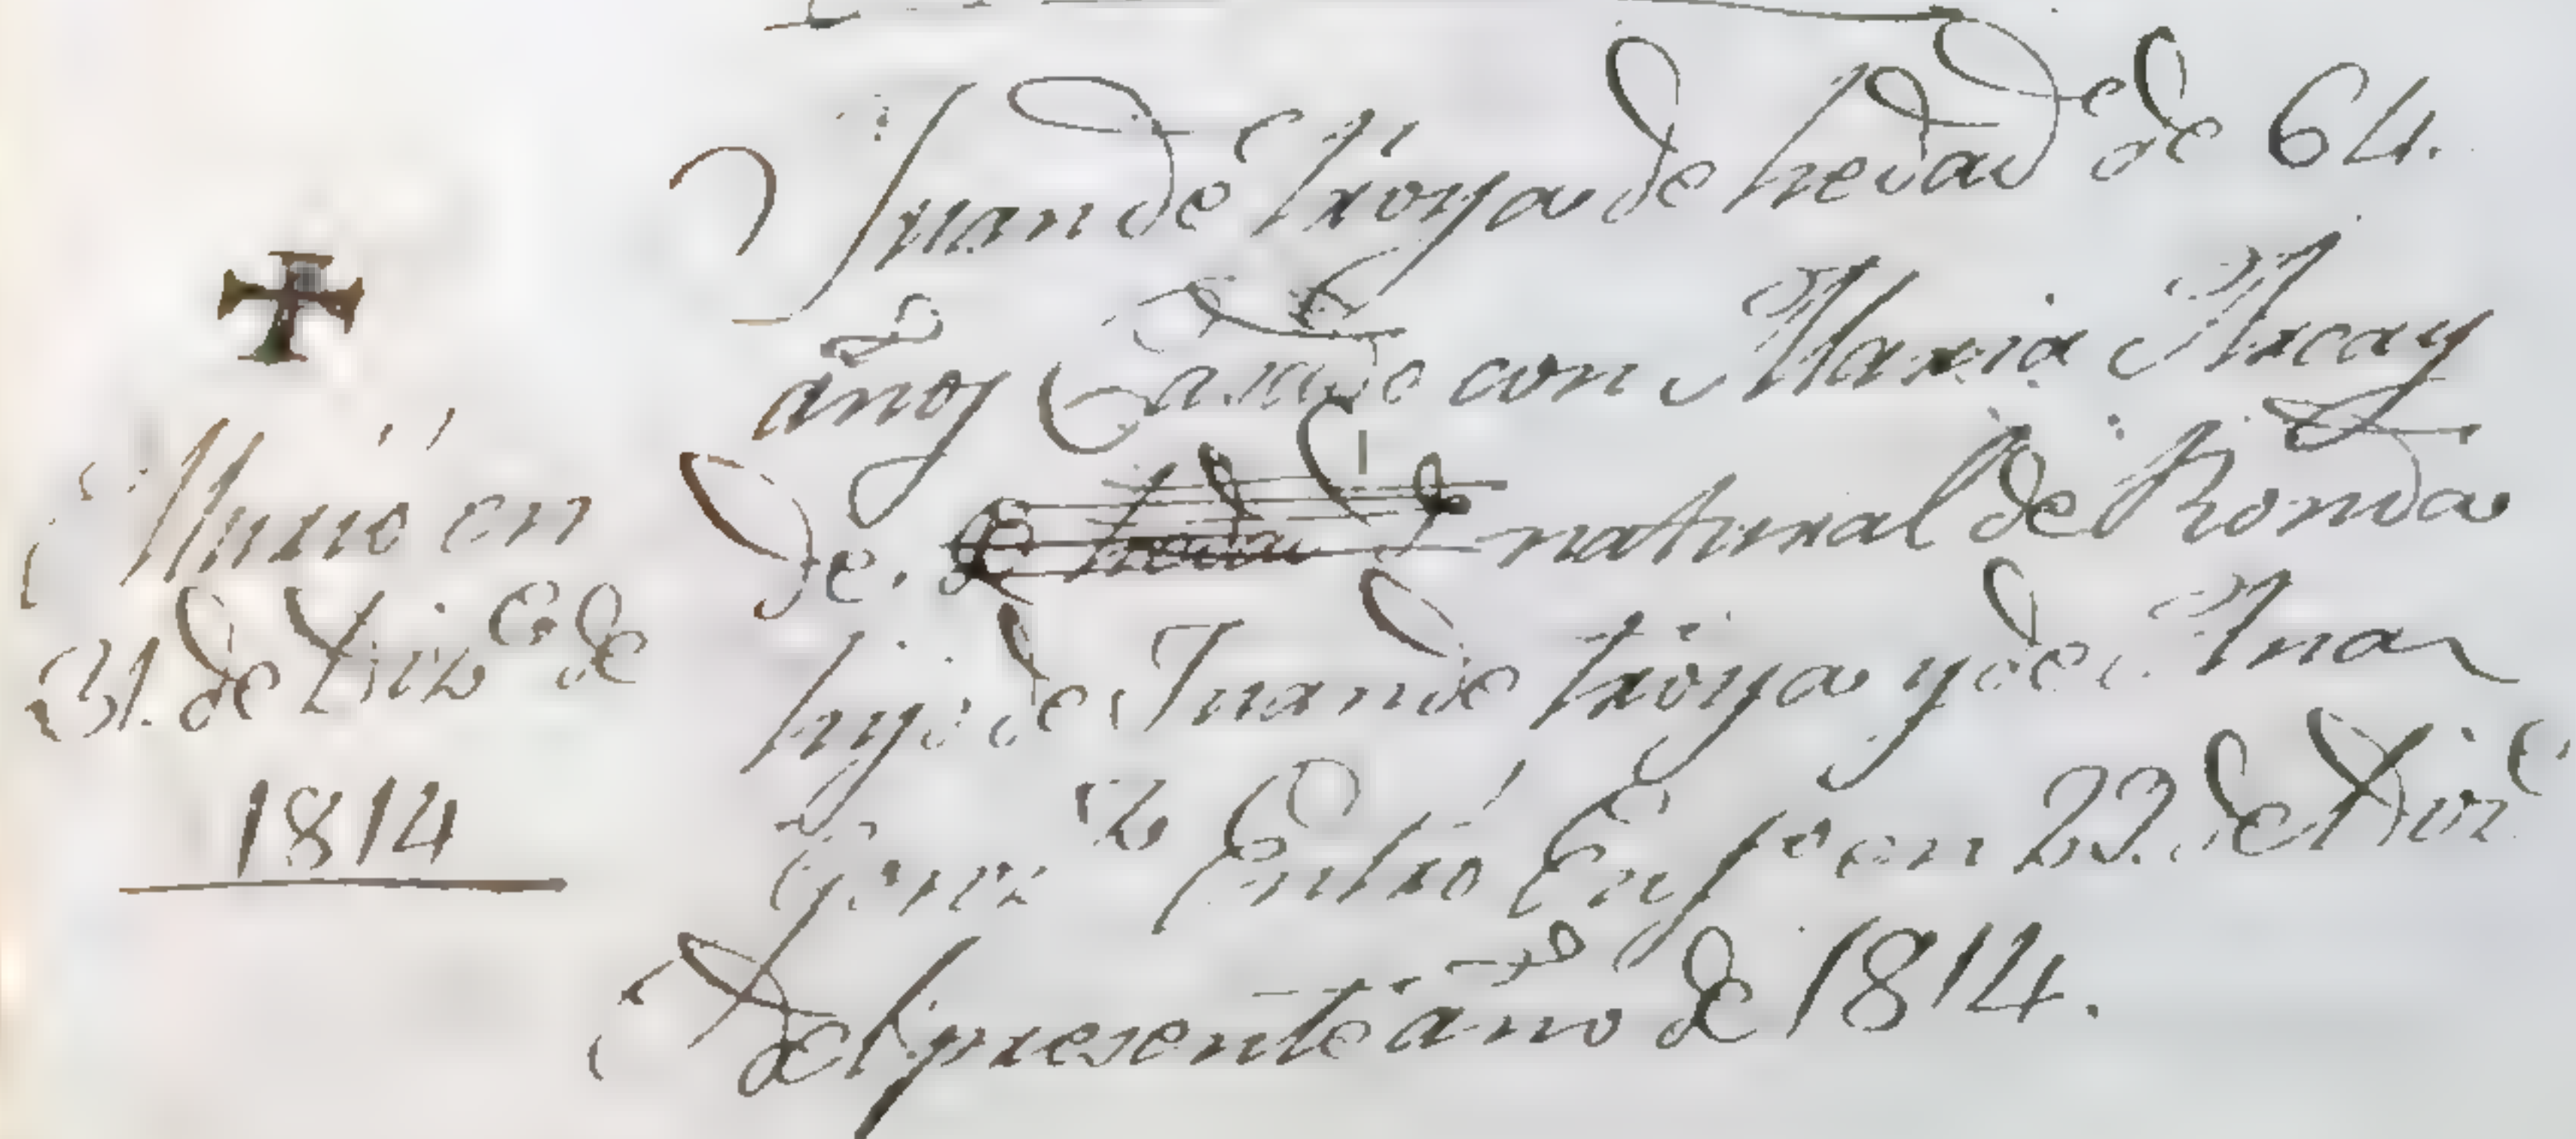 Murió en
31. de Dizᵉ de
1814
Juan de troya de hedad de 64.
años Casado con Maria
de. natural de Ronda
hijo de Juan de troya y de Ana
Entró Enfᵒ en 22. de Dizᵉ
del presente año de 1814.